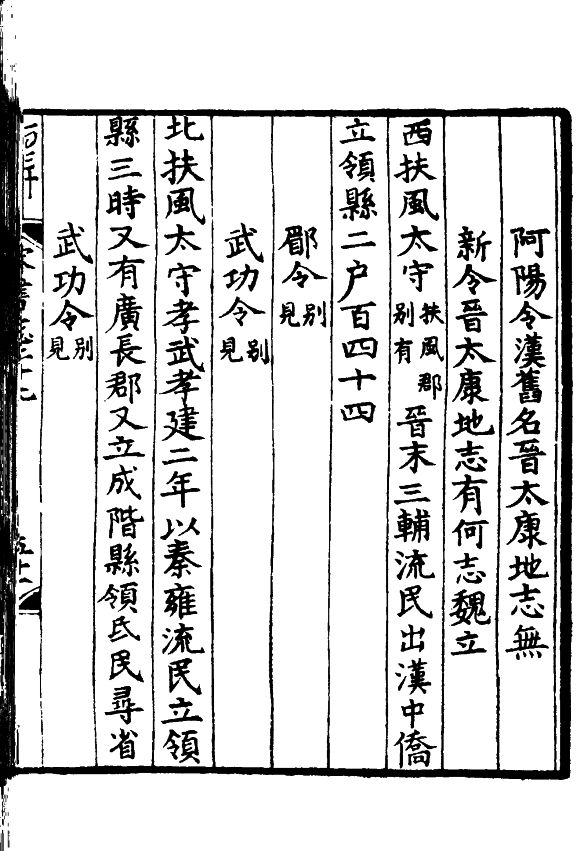 阿陽令漢舊名晉太康地志無
新令晉太康地志有何志魏立
西扶風太守扶風郡别有晉末三輔流民出漢中僑
立領縣二户百四十四
郿令别見
武功令别見
北扶風太守孝武孝建二年以秦雍流民立領
縣三時又有廣長郡又立成階縣領氐民尋省
武功令别見